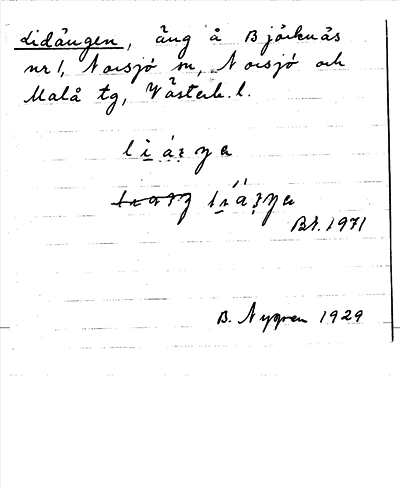 Lidängen, äng å Bjärknäs
nr 1, Norsjö sn, Norsjö och
Malå tg, Västerb. l.
Bt. 1971
B. Nygren 1929